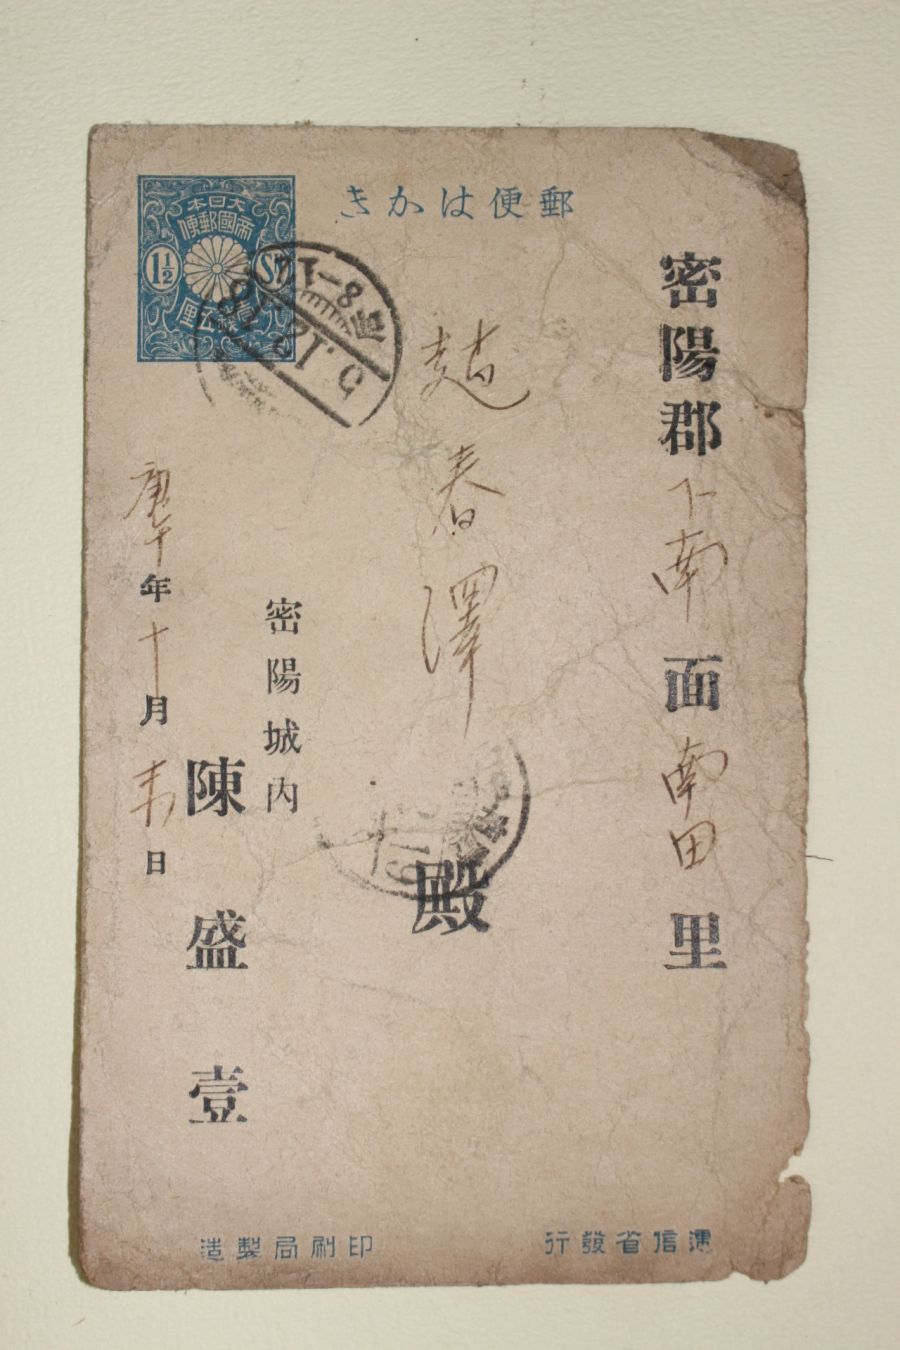 郵便はかき
大日本
帝國郵便
壹錢五厘
1½ Sn
密陽郡下南面南田里
趙春澤殿
密陽城内
陳盛壹
庚午年十月 日
5.12.
8-11
遞信省發行
印刷局製造